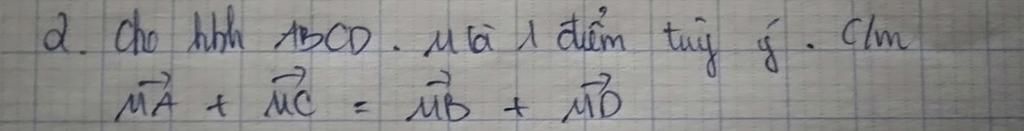 2. Cho hbh ABCD. M là 1 điểm tuỳ ý. C/m
$\overrightarrow{MA} + \overrightarrow{MC} = \overrightarrow{MB} + \overrightarrow{MD}$